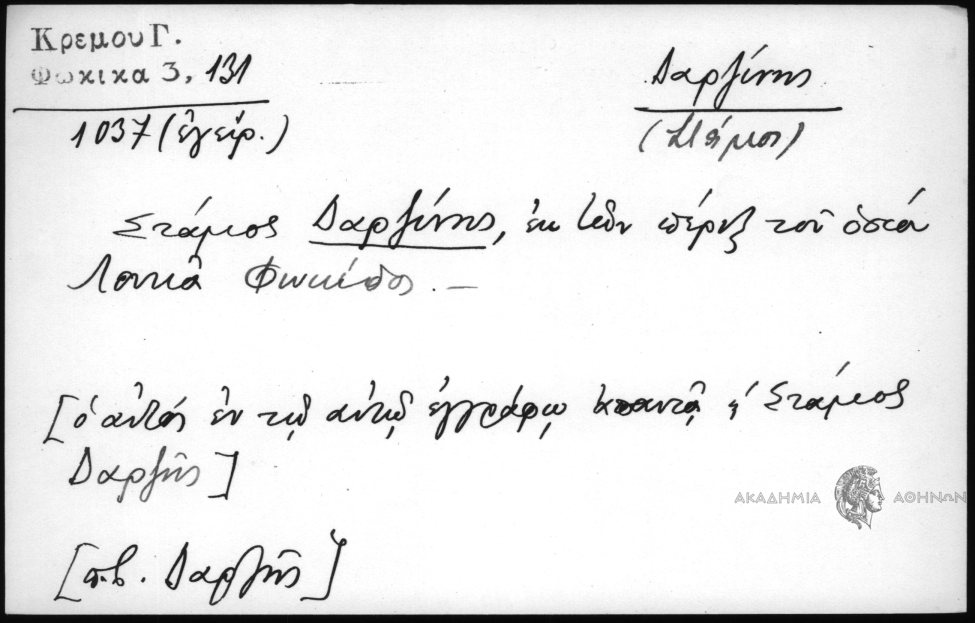 Κρεμου Γ.
Φωκικα 3, 131
1037 (ἐγείρ.)
Δαρζίνης
(Στάμος)
Στάμος Δαρζίνης, ἐκ τῶν πέριξ τοῦ ὁσίου
Λουκᾶ Φωκίδος. —
[ὁ αὐτός ἐν τῷ αὐτῷ ἐγγράφῳ ἀπαντᾷ ὡς Στάμος
Δαρζῆς]
[π.β. Δαρζῆς]
ΑΚΑΔΗΜΙΑ ΑΘΗΝΩΝ